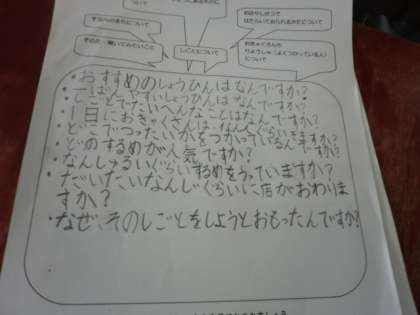 すうへのあたについて
おはやしさつで
はたらいておられるかたについて
そのた、聞いてみたいこと
しごとについて
おきゃくさんや
りようしゃ（よくつかっている人）
について
・おすすめのしょうひんはなんですか?
・一ばんやすいしょうひんはなんですか?
・しごとでたいへんなことはなんですか?
・1日におきゃくさんはなんんぐらいきますか?
・どこでつったいかをつかっているんですか?
・どのするめが人気ですか?
・なんしゅるいぐらいするめをうっていますか?
・だいたいなんじぐらいに店がおわりま
すか?
・なぜ、そのしごとをしようとおもったんですか?